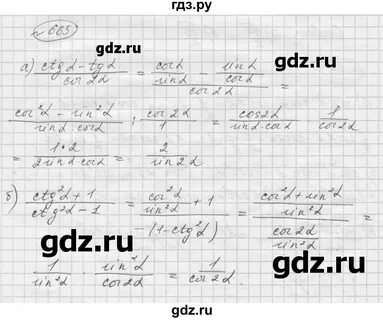 гдз.ру
№ 665
а) (ctg α - tg α)/(cos 2α) = (cos α/sin α - sin α/cos α)/(cos 2α) =
(cos²α - sin²α)/(sin α cos α) : (cos 2α)/1 = (cos 2α)/(sin α · cos α) · 1/(cos 2α)
= (1·2)/(2 sin α cos α) = 2/(sin 2α)
б) (ctg²α + 1)/(ctg²α - 1) = (cos²α/sin²α + 1)/(-(1 - ctg²α)) = ((cos²α + sin²α)/sin²α)/(cos 2α/sin²α) =
gdz.ru gdz.ru
1/(sin²α) · (sin²α)/(cos 2α) = 1/(cos 2α).
gdz.ru gdz.ru